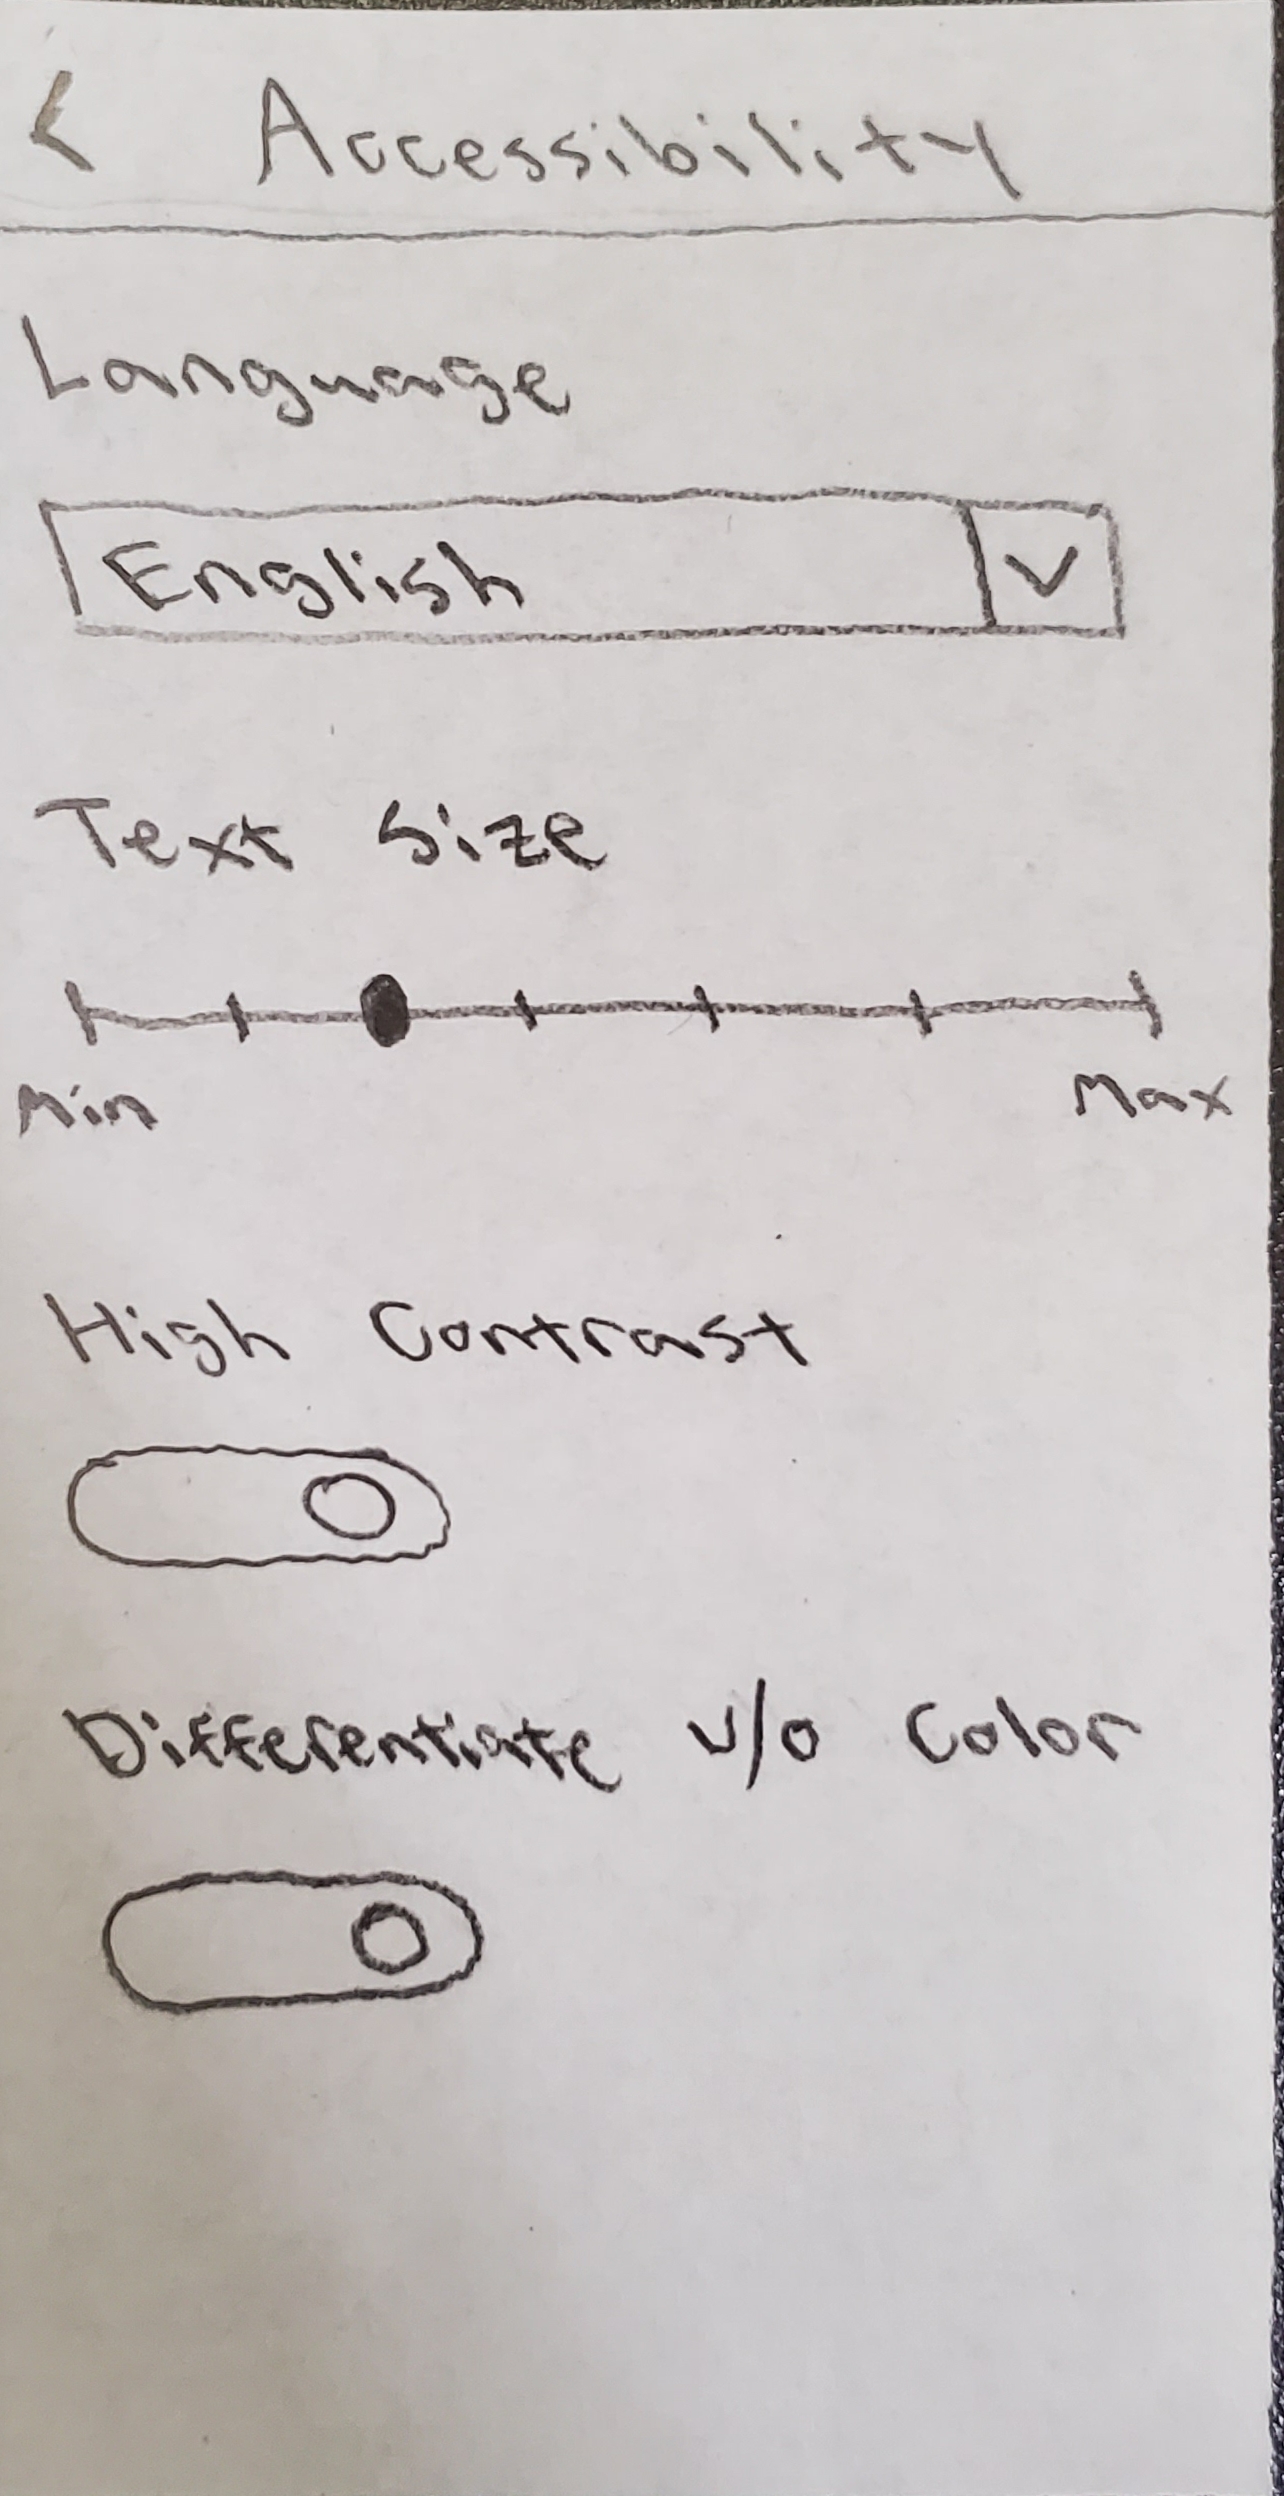 < Accessibility
Language
English
Text Size
Min Max
High Contrast
Differentiate w/o Color